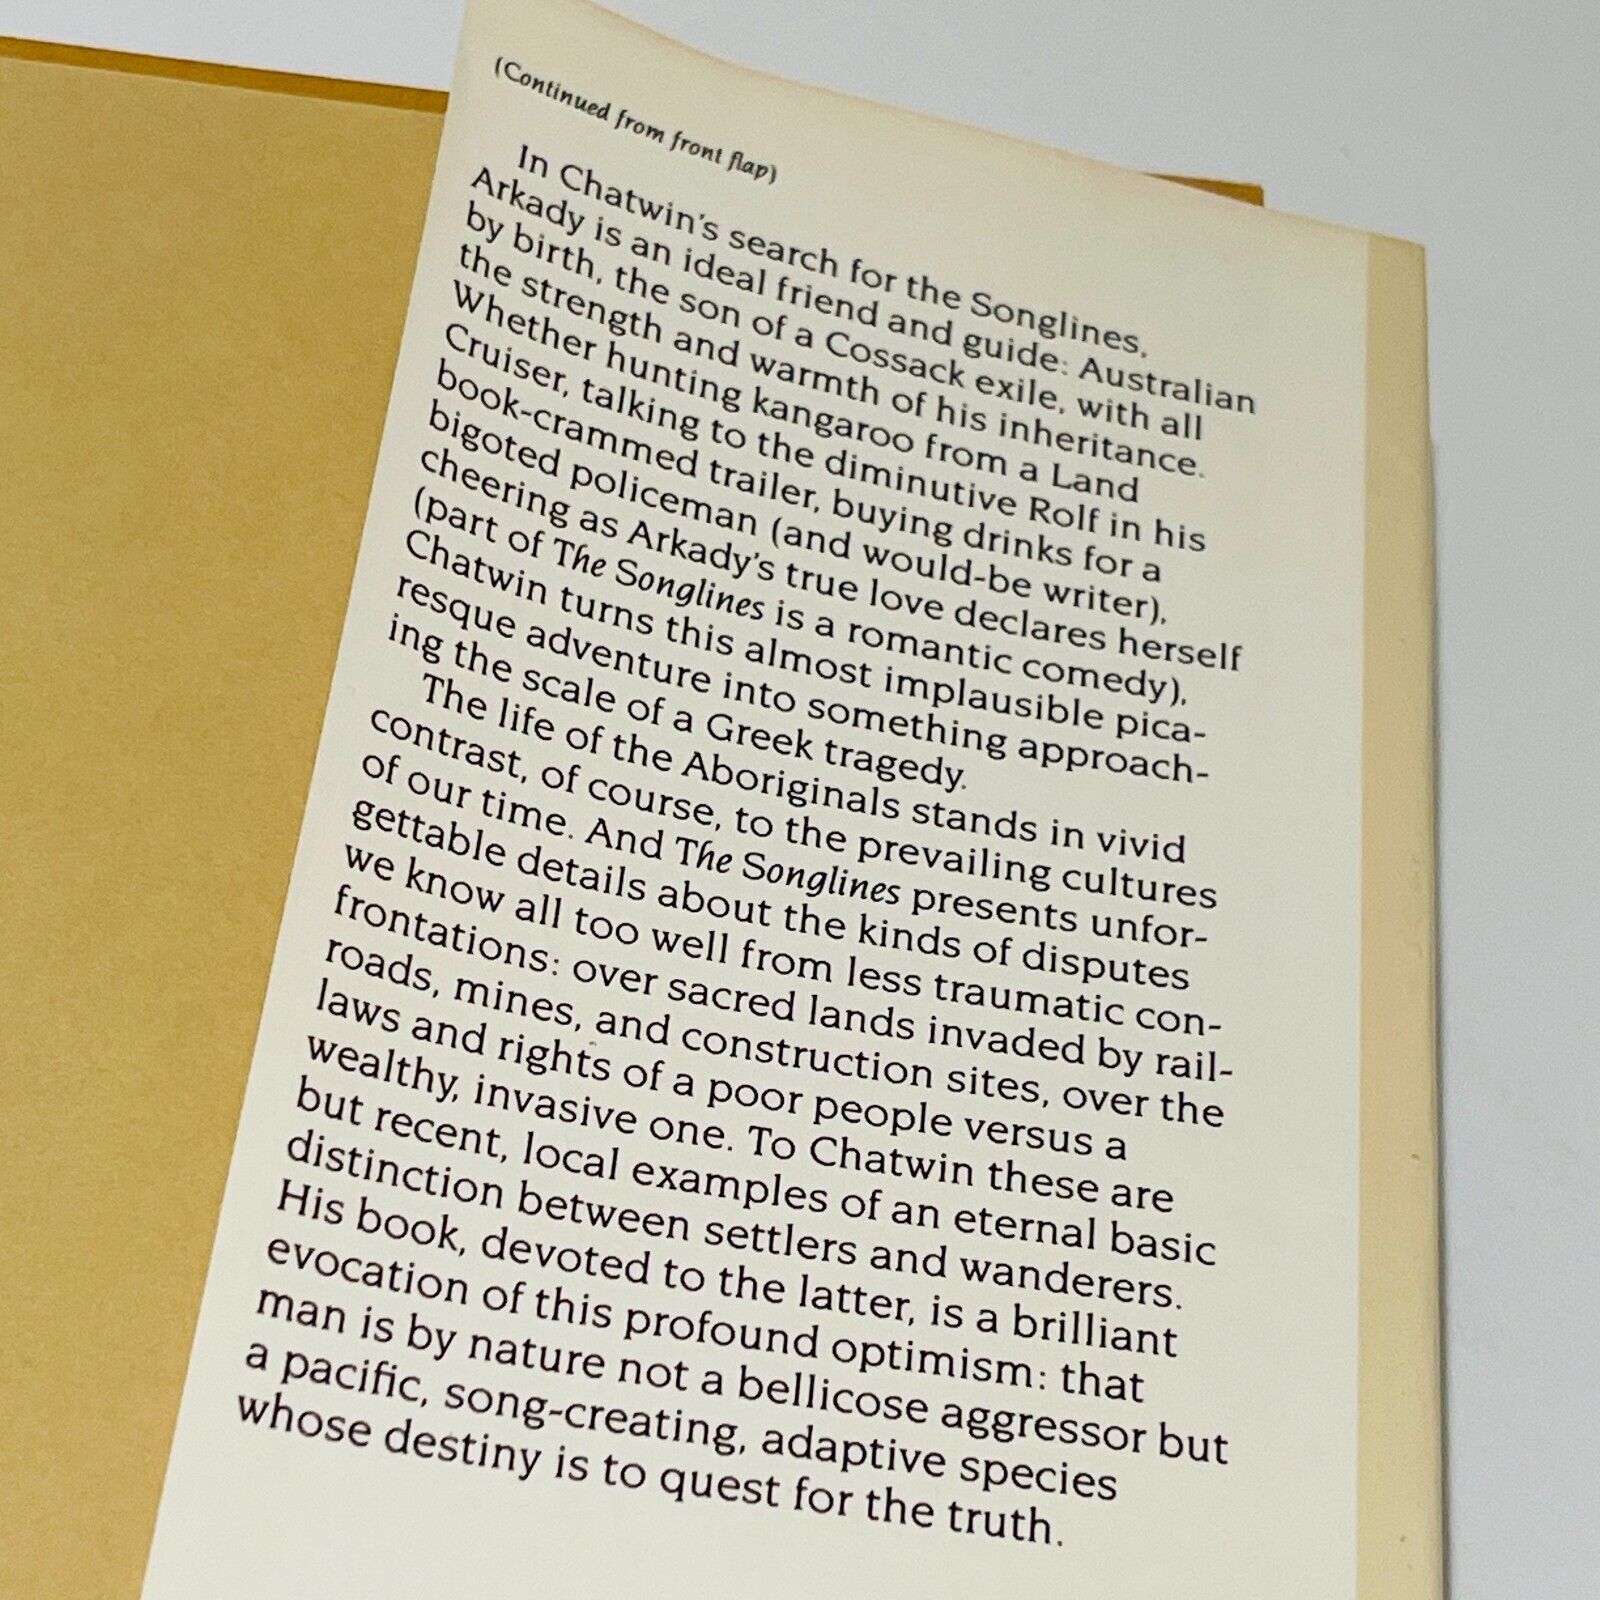 (Continued from front flap)
In Chatwin's search for the Songlines,
Arkady is an ideal friend and guide: Australian
by birth, the son of a Cossack exile, with all
the strength and warmth of his inheritance.
Whether hunting kangaroo from a Land
Cruiser, talking to the diminutive Rolf in his
book-crammed trailer, buying drinks for a
bigoted policeman (and would-be writer),
cheering as Arkady's true love declares herself
(part of The Songlines is a romantic comedy),
Chatwin turns this almost implausible pica-
resque adventure into something approach-
ing the scale of a Greek tragedy.
The life of the Aboriginals stands in vivid
contrast, of course, to the prevailing cultures
of our time. And The Songlines presents unfor-
gettable details about the kinds of disputes
we know all too well from less traumatic con-
frontations: over sacred lands invaded by rail-
roads, mines, and construction sites, over the
laws and rights of a poor people versus a
wealthy, invasive one. To Chatwin these are
but recent, local examples of an eternal basic
distinction between settlers and wanderers.
His book, devoted to the latter, is a brilliant
evocation of this profound optimism: that
man is by nature not a bellicose aggressor but
a pacific, song-creating, adaptive species
whose destiny is to quest for the truth.